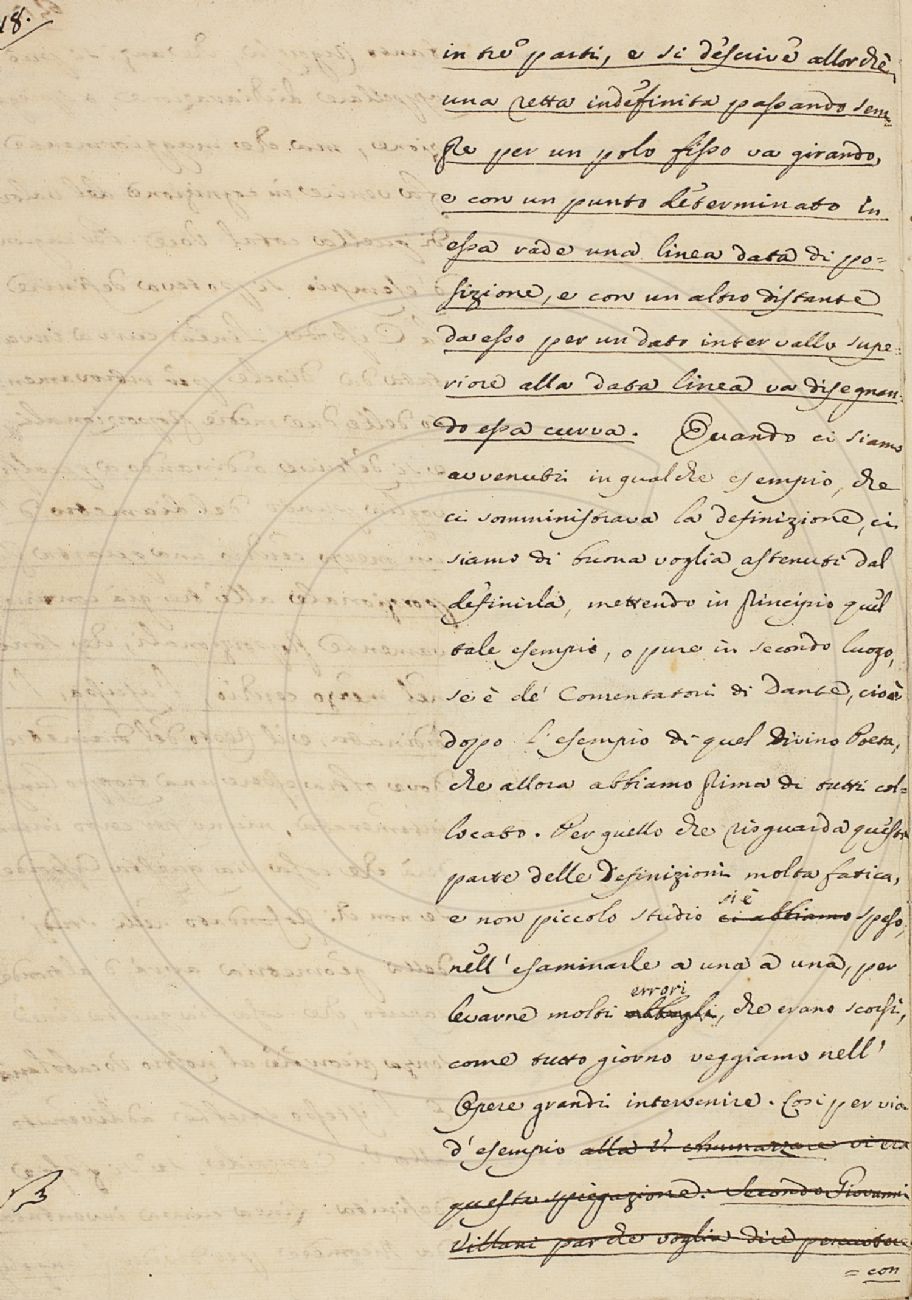 18.
in tre parti, e si descrive allorchè
una retta indefinita passando sem=
pre per un polo fisso va girando,
e con un punto determinato in
essa rade una linea data di po=
sizione, e con un altro distante
da esso per un dato intervallo supe=
riore alla data linea va disegnan=
do essa curva. Quando ci siamo
avvenuti in qualche esempio, che
ci somministrava la definizione, ci
siamo di buona voglia astenuti dal
definirla, mettendo in principio quel
tale esempio, o pure in secondo luogo,
se è de' Comentatori di Dante, cioè
doppo l'esempio di quel Divino Poeta,
che allora abbiamo prima di tutti col=
locato. Per quello che risguarda questa
parte delle Definizioni molta fatica,
si è
e non piccolo studio ci abbiamo speso,
nell' esaminarle a una a una, per
errori
levarne molti abbagli, che erano scorsi,
come tutto giorno veggiamo nell'
Opere grandi intervenire. Così per via
d'esempio alla V. Ammazzare vi era
questa spiegazione: Secondo Giovanni
Villani par che voglia dire percuotere
= con